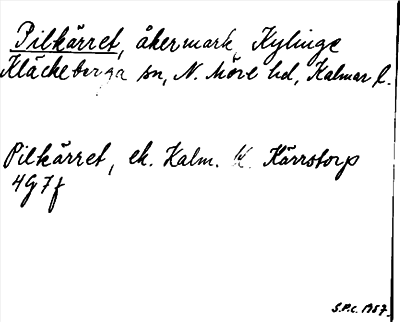 Pilkärret, åkermark, Kylinge
Kläckeberga sn, N. Möre hd, Kalmar l.
Pilkärret, ek. Kalm. K. Kärrstorp
4G7f
S.P.C. 1957.